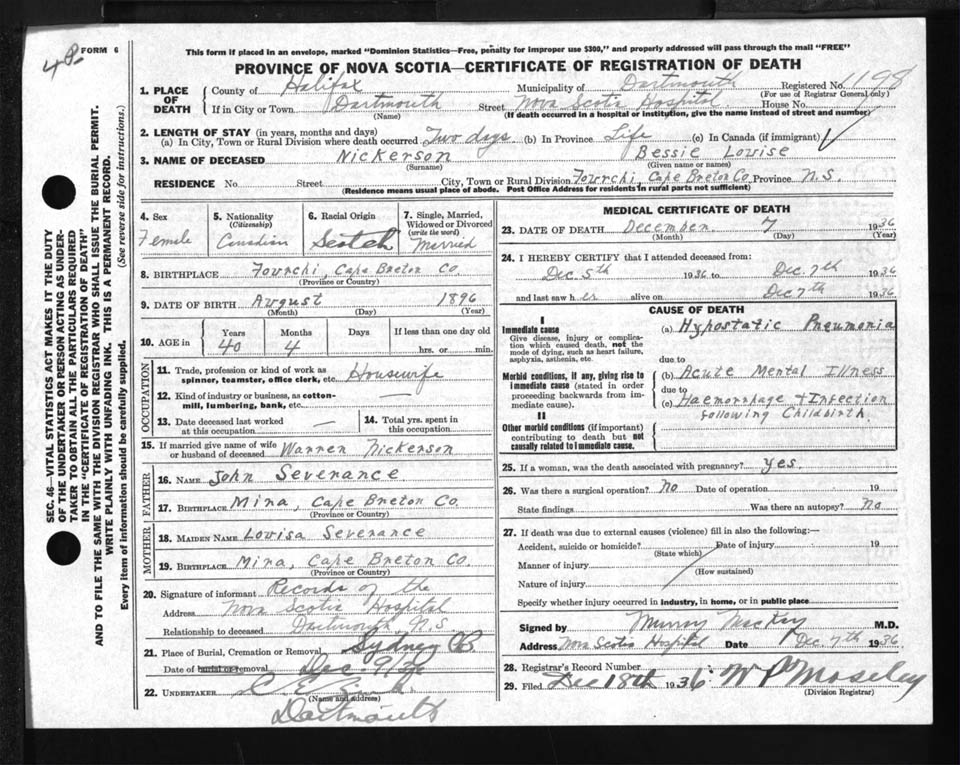 48.
FORM 6
This form if placed in an envelope, marked "Dominion Statistics—Free, penalty for improper use $300," and properly addressed will pass through the mail "FREE"
PROVINCE OF NOVA SCOTIA—CERTIFICATE OF REGISTRATION OF DEATH
SEC. 46—VITAL STATISTICS ACT MAKES IT THE DUTY
OF THE UNDERTAKER OR PERSON ACTING AS UNDER-
TAKER TO OBTAIN ALL THE PARTICULARS REQUIRED
IN THE "CERTIFICATE OF REGISTRATION OF DEATH"
AND TO FILE THE SAME WITH THE DIVISION REGISTRAR WHO SHALL ISSUE THE BURIAL PERMIT.
WRITE PLAINLY WITH UNFADING INK. THIS IS A PERMANENT RECORD.
Every item of information should be carefully supplied. (See reverse side for instructions.)
1. PLACE OF DEATH County of Halifax Municipality of Dartmouth Registered No. 1198
(For use of Registrar General only)
If in City or Town Dartmouth Street Nova Scotia Hospital House No.
(Name) (If death occurred in a hospital or institution, give the name instead of street and number)
2. LENGTH OF STAY (in years, months and days)
(a) In City, Town or Rural Division where death occurred Two days (b) In Province Life (c) In Canada (if immigrant)
3. NAME OF DECEASED Nickerson Bessie Louise
(Surname) (Given name or names)
RESIDENCE No. Street City, Town or Rural Division Fourchi, Cape Breton Co. Province N.S.
(Residence means usual place of abode. Post Office Address for residents in rural parts not sufficient)
4. Sex
Female
5. Nationality
(Citizenship)
Canadian
6. Racial Origin
Scotch
7. Single, Married, Widowed or Divorced
(write the word)
Married
8. BIRTHPLACE Fourchi, Cape Breton Co
(Province or Country)
9. DATE OF BIRTH August 1896
(Month) (Day) (Year)
10. AGE in Years Months Days If less than one day old
40 4 hrs. or min.
OCCUPATION
11. Trade, profession or kind of work as
spinner, teamster, office clerk, etc. Housewife
12. Kind of industry or business, as cotton-
mill, lumbering, bank, etc. —
13. Date deceased last worked
at this occupation —
14. Total yrs. spent in
this occupation
15. If married give name of wife
or husband of deceased Warren Nickerson
FATHER
16. NAME John Severance
17. BIRTHPLACE Mira, Cape Breton Co.
(Province or Country)
MOTHER
18. MAIDEN NAME Louisa Severance
19. BIRTHPLACE Mira, Cape Breton Co
(Province or Country)
20. Signature of informant Records of the
Address Nova Scotia Hospital
Relationship to deceased Dartmouth N.S
21. Place of Burial, Cremation or Removal Sydney CB
Date of burial or removal Dec. 9/36
22. UNDERTAKER
(Name and address)
Dartmouth
MEDICAL CERTIFICATE OF DEATH
23. DATE OF DEATH December 7 1936
(Month) (Day) (Year)
24. I HEREBY CERTIFY that I attended deceased from:
Dec. 5th 1936 to Dec. 7th 1936
and last saw her alive on Dec 7th 1936
CAUSE OF DEATH
I
Immediate cause
Give disease, injury or complica-
tion which caused death, not the
mode of dying, such as heart failure,
asphyxia, asthenia, etc.
(a) Hypostatic Pneumonia
due to
Morbid conditions, if any, giving rise to
immediate cause (stated in order
proceeding backwards from im-
mediate cause).
(b) Acute Mental Illness
due to
(c) Haemorrhage + Infection
following Childbirth
II
Other morbid conditions (if important)
contributing to death but not
causally related to immediate cause.
25. If a woman, was the death associated with pregnancy? yes.
26. Was there a surgical operation? No Date of operation 19
State findings Was there an autopsy? No
27. If death was due to external causes (violence) fill in also the following:—
Accident, suicide or homicide? Date of injury 19
(State which)
Manner of injury
(How sustained)
Nature of injury
Specify whether injury occurred in industry, in home, or in public place
Signed by Murray MacKay M.D.
Address Nova Scotia Hospital Date Dec 7th 1936
28. Registrar's Record Number
29. Filed Dec 18th 1936 W P Moseley
(Division Registrar)